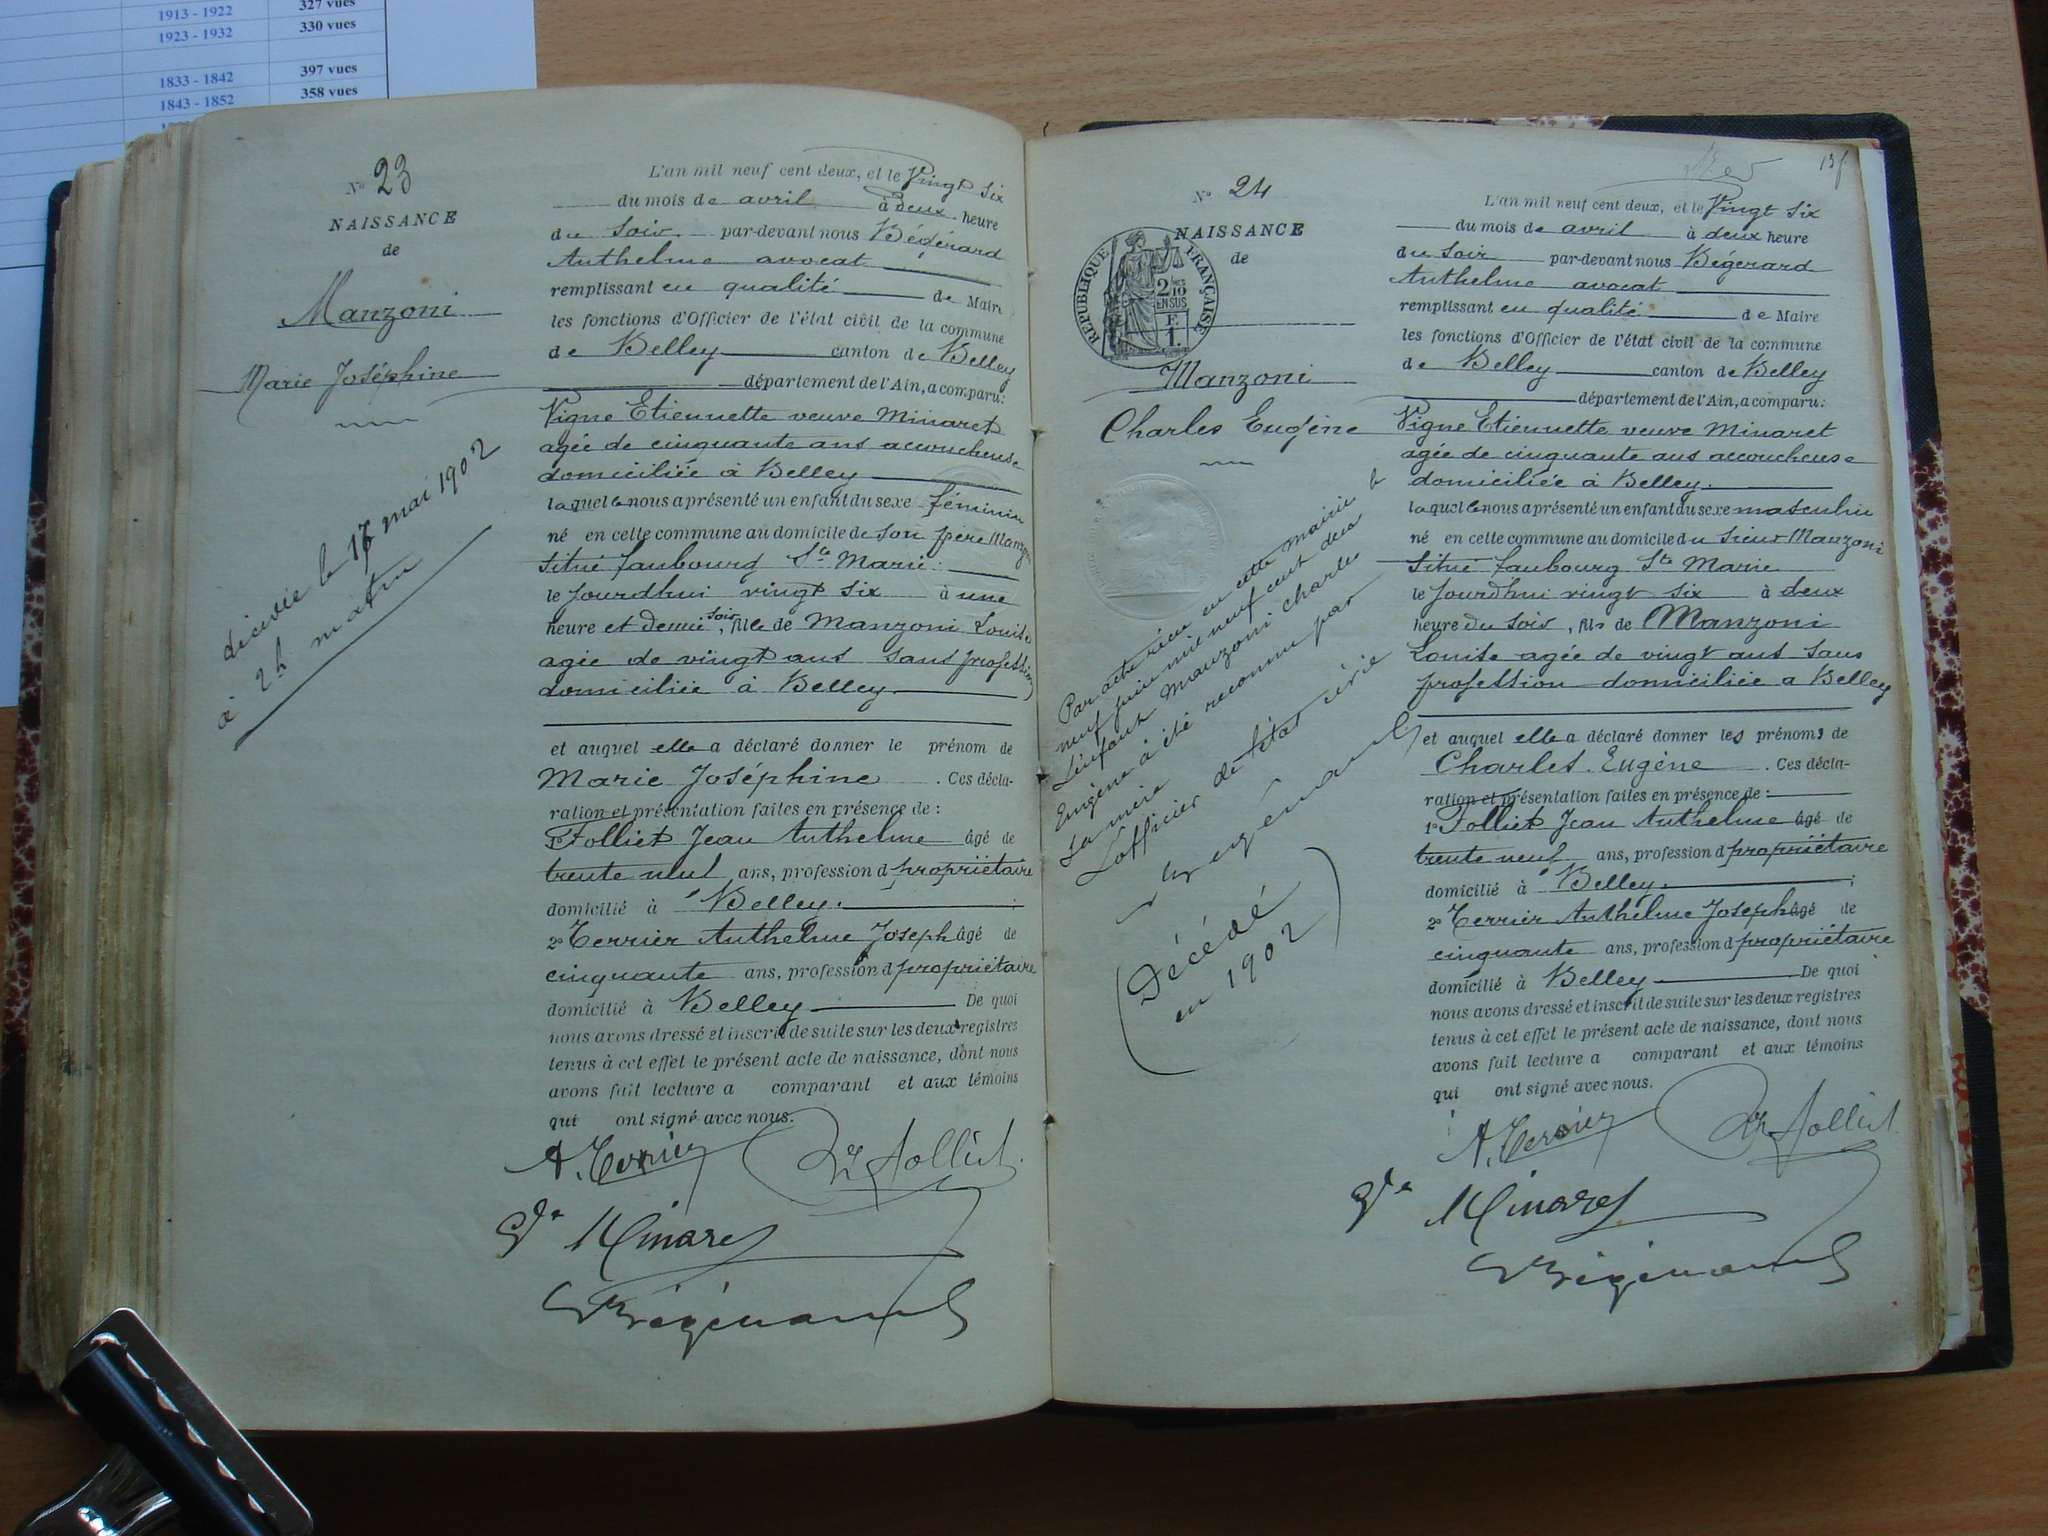 1913 - 1922 327 vues
1923 - 1932 330 vues
1833 - 1842 397 vues
1843 - 1852 358 vues
N° 23
NAISSANCE
de
Manzoni
Marie Joséphine
décédée le 17 mai 1902
à 2h matin
L'an mil neuf cent deux, et le Vingt six
du mois de avril à deux heure
du soir par-devant nous Bégérard
Anthelme avocat
remplissant en qualité de Maire
les fonctions d'Officier de l'état civil de la commune
de Belley canton de Belley
département de l'Ain, a comparu:
Vigne Etiennette veuve Minaret
agée de cinquante ans accoucheuse
domiciliée à Belley
laquelle nous a présenté un enfant du sexe féminin
né en cette commune au domicile de son père Manzoni
Situé faubourg Ste Marie
le jourdhui vingt six à une
heure et demie soir, fille de Manzoni Louise
agée de vingt ans sans profession
domiciliée à Belley
et auquel elle a déclaré donner le prénom de
Marie Joséphine . Ces décla-
ration et présentation faites en présence de :
1° Folliet Jean Anthelme âgé de
trente neuf ans, profession d propriétaire
domicilié à Belley.
2° Terrier Anthelme Joseph âgé de
cinquante ans, profession d propriétaire
domicilié à Belley De quoi
nous avons dressé et inscrit de suite sur les deux registres
tenus à cet effet le présent acte de naissance, dont nous
avons fait lecture a comparant et aux témoins
qui ont signé avec nous.
A. Terrier Folliet
Ve Minaret
Bégérard
135
N° 24
NAISSANCE
de
RÉPUBLIQUE FRANÇAISE
2/10 EN SUS
F. 1.
Manzoni
Charles Eugène
Par acte reçu en cette mairie le
neuf juin mil neuf cent deux
L'enfant Manzoni Charles
Eugène à été reconnu par
sa mère
L'officier de l'état civil
Bégérard
(Décédé
en 1902)
L'an mil neuf cent deux, et le Vingt six
du mois de avril à deux heure
du soir par-devant nous Bégerard
Anthelme avocat
remplissant en qualité de Maire
les fonctions d'Officier de l'état civil de la commune
de Belley canton de Belley
département de l'Ain, a comparu:
Vigne Etiennette veuve Minaret
agée de cinquante ans accoucheuse
domiciliée à Belley.
laquelle nous a présenté un enfant du sexe masculin
né en cette commune au domicile du sieur Manzoni
Situé faubourg Ste Marie
le jourdhui vingt six à deux
heure du soir, fils de Manzoni
Louise agée de vingt ans sans
profession domiciliée a Belley
et auquel elle a déclaré donner les prénoms de
Charles Eugène . Ces décla-
ration et présentation faites en présence de :
1° Folliet Jean Anthelme âgé de
trente neuf ans, profession d propriétaire
domicilié à Belley. ;
2° Terrier Anthelme Joseph âgé de
cinquante ans, profession d propriétaire
domicilié à Belley De quoi
nous avons dressé et inscrit de suite sur les deux registres
tenus à cet effet le présent acte de naissance, dont nous
avons fait lecture a comparant et aux témoins
qui ont signé avec nous.
A. Terrier Folliet
Ve Minaret
Bégérard